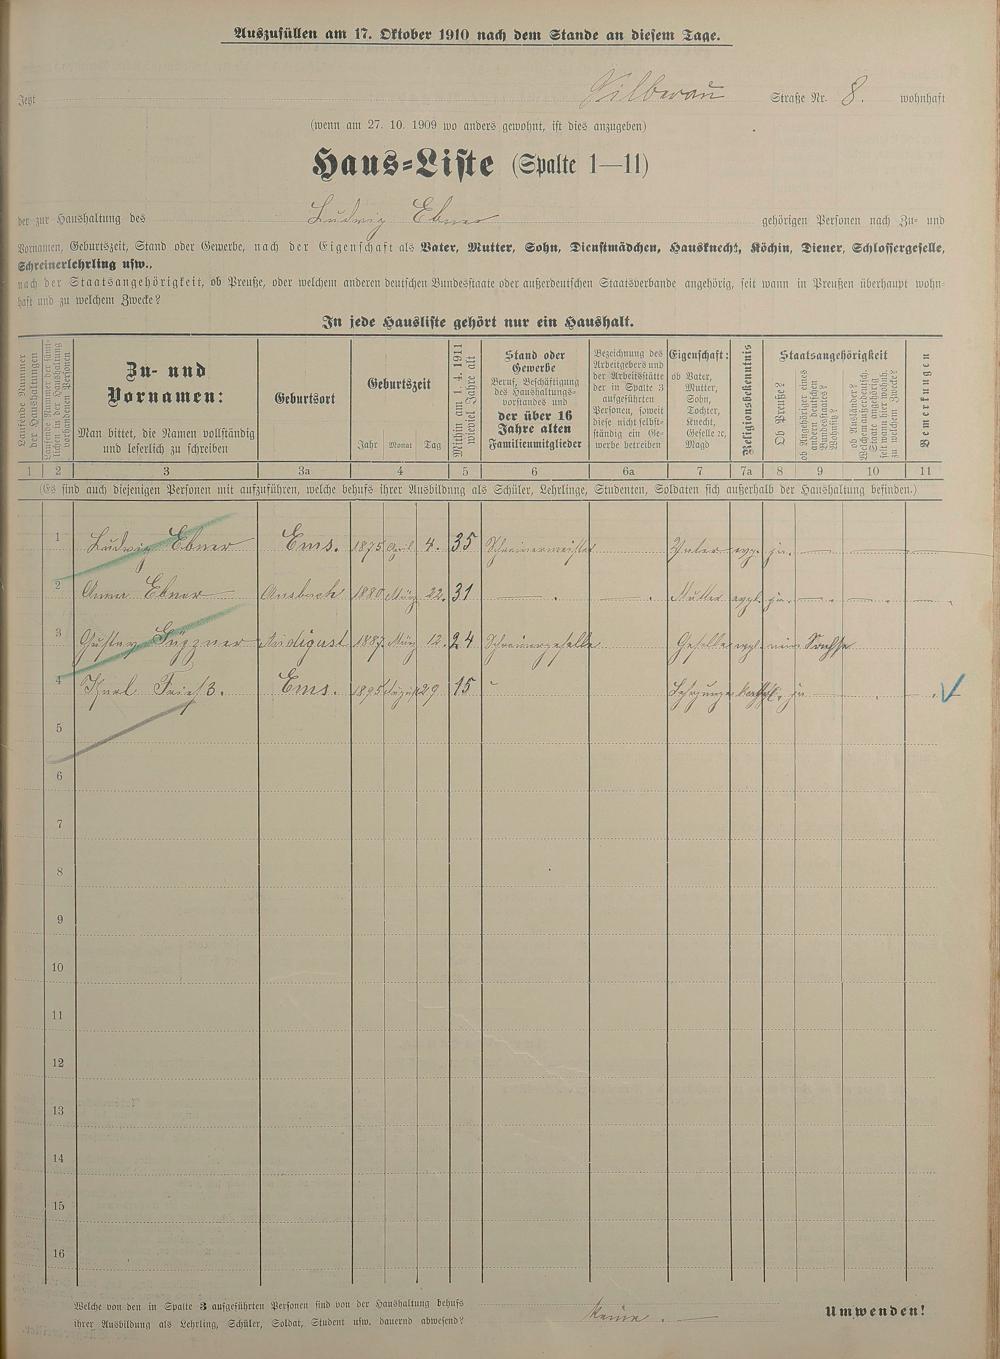 Auszufüllen am 17. Oktober 1910 nach dem Stande an diesem Tage.
Jetzt Silberau Straße Nr. 8. wohnhaft
(wenn am 27. 10. 1909 wo anders gewohnt, ist dies anzugeben)
Haus-Liste (Spalte 1—11)
der zur Haushaltung des Ludwig Ebner gehörigen Personen nach Zu- und
Vornamen, Geburtszeit, Stand oder Gewerbe, nach der Eigenschaft als Vater, Mutter, Sohn, Dienstmädchen, Hausknecht, Köchin, Diener, Schlossergeselle,
Schreinerlehrling usw.,
nach der Staatsangehörigkeit, ob Preuße, oder welchem anderen deutschen Bundesstaate oder außerdeutschen Staatsverbande angehörig, seit wann in Preußen überhaupt wohn-
haft und zu welchem Zwecke?
In jede Hausliste gehört nur ein Haushalt.
Laufende Nummer der Haushaltungen
Laufende Nummer der sämtlichen in der Haushaltung vorhandenen Personen
Zu- und
Vornamen:
Man bittet, die Namen vollständig
und leserlich zu schreiben
Geburtsort
Geburtszeit
Jahr Monat Tag
Mithin am 1. 4. 1911
wieviel Jahre alt
Stand oder
Gewerbe
Beruf, Beschäftigung
des Haushaltungs-
vorstandes und
der über 16
Jahre alten
Familienmitglieder
Bezeichnung des
Arbeitgebers und
der Arbeitsstätte
der in Spalte 3
aufgeführten
Personen, soweit
diese nicht selbst-
ständig ein Ge-
werbe betreiben
Eigenschaft:
ob Vater,
Mutter,
Sohn,
Tochter,
Knecht,
Geselle ec,
Magd
Religionsbekenntnis
Staatsangehörigkeit
Ob Preuße?
ob Angehöriger eines
andern deutschen
Bundesstaates?
Wohnsitz?
ob Ausländer?
Welchem außerdeutsch.
Staate angehörig
seit wann hier wohnh.
zu welchem Zwecke?
Bemerkungen
1 2 3 3a 4 5 6 6a 7 7a 8 9 10 11
(Es sind auch diejenigen Personen mit aufzuführen, welche behufs ihrer Ausbildung als Schüler, Lehrlinge, Studenten, Soldaten sich außerhalb der Haushaltung befinden.)
1 Ludwig Ebner Ems. 1875 April 4. 35 Schreinermeister Vater evgl. ja. — — —
2 Anna Ebner — Ansbach 1880 März 22. 31 — — Mutter evgl. ja. — — —
3 Gustav 1887 März 12. 24 Schreinergeselle Geselle evgl. nein Sachse
4 Karl Ems. 1895 29 15 " kathl. ja — —
5
6
7
8
9
10
11
12
13
14
15
16
Welche von den in Spalte 3 aufgeführten Personen sind von der Haushaltung behufs
ihrer Ausbildung als Lehrling, Schüler, Soldat, Student usw. dauernd abwesend? keine. —
Umwenden!